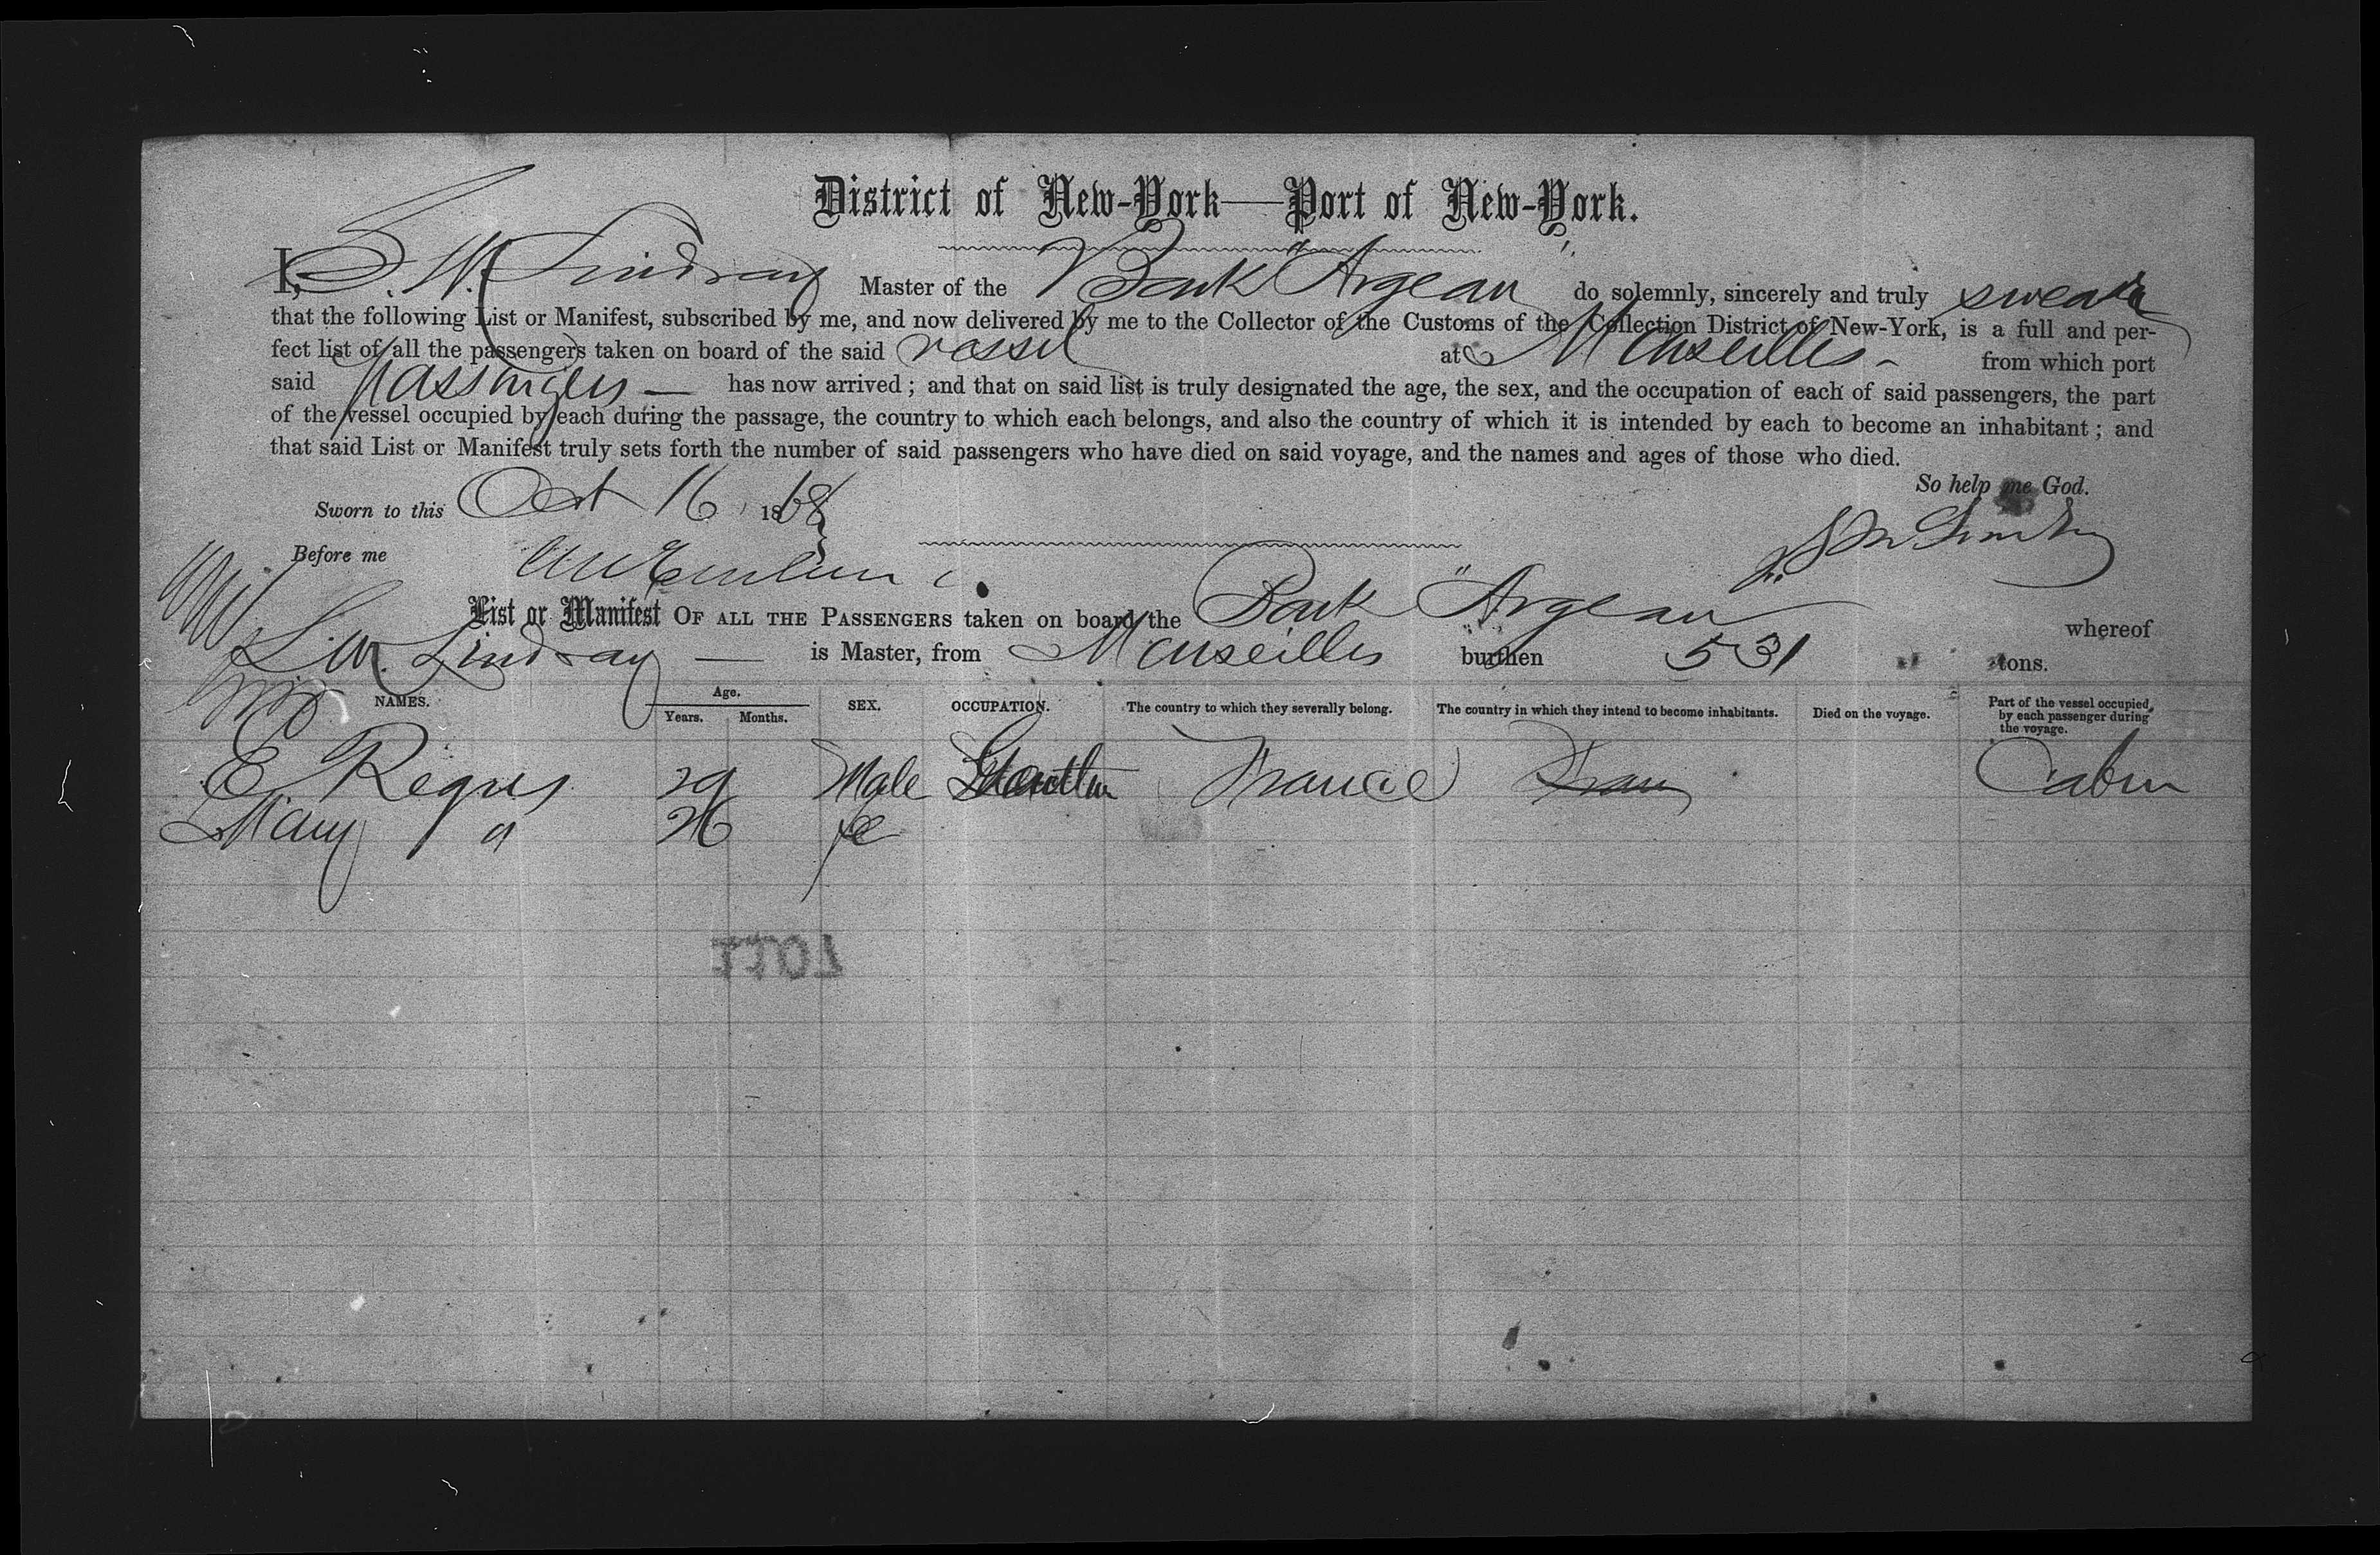 District of New-York—Port of New-York.
I, S. W. Lindsay Master of the Bark "Argean" do solemnly, sincerely and truly swear
that the following List or Manifest, subscribed by me, and now delivered by me to the Collector of the Customs of the Collection District of New-York, is a full and per-
fect list of all the passengers taken on board of the said vessel at Marseilles - from which port
said Passengers — has now arrived; and that on said list is truly designated the age, the sex, and the occupation of each of said passengers, the part
of the vessel occupied by each during the passage, the country to which each belongs, and also the country of which it is intended by each to become an inhabitant; and
that said List or Manifest truly sets forth the number of said passengers who have died on said voyage, and the names and ages of those who died.
So help me God.
Sworn to this Oct 16 1868
Before me
List or Manifest OF ALL THE PASSENGERS taken on board the Bark "Argean whereof
S. W. Lindsay — is Master, from Marseilles burthen 531 tons.
NAMES. Age. Years. Months. SEX. OCCUPATION. The country to which they severally belong. The country in which they intend to become inhabitants. Died on the voyage. Part of the vessel occupied by each passenger during the voyage.
E Regus 29 Male France Cabin
Mary " 26 fe
1107